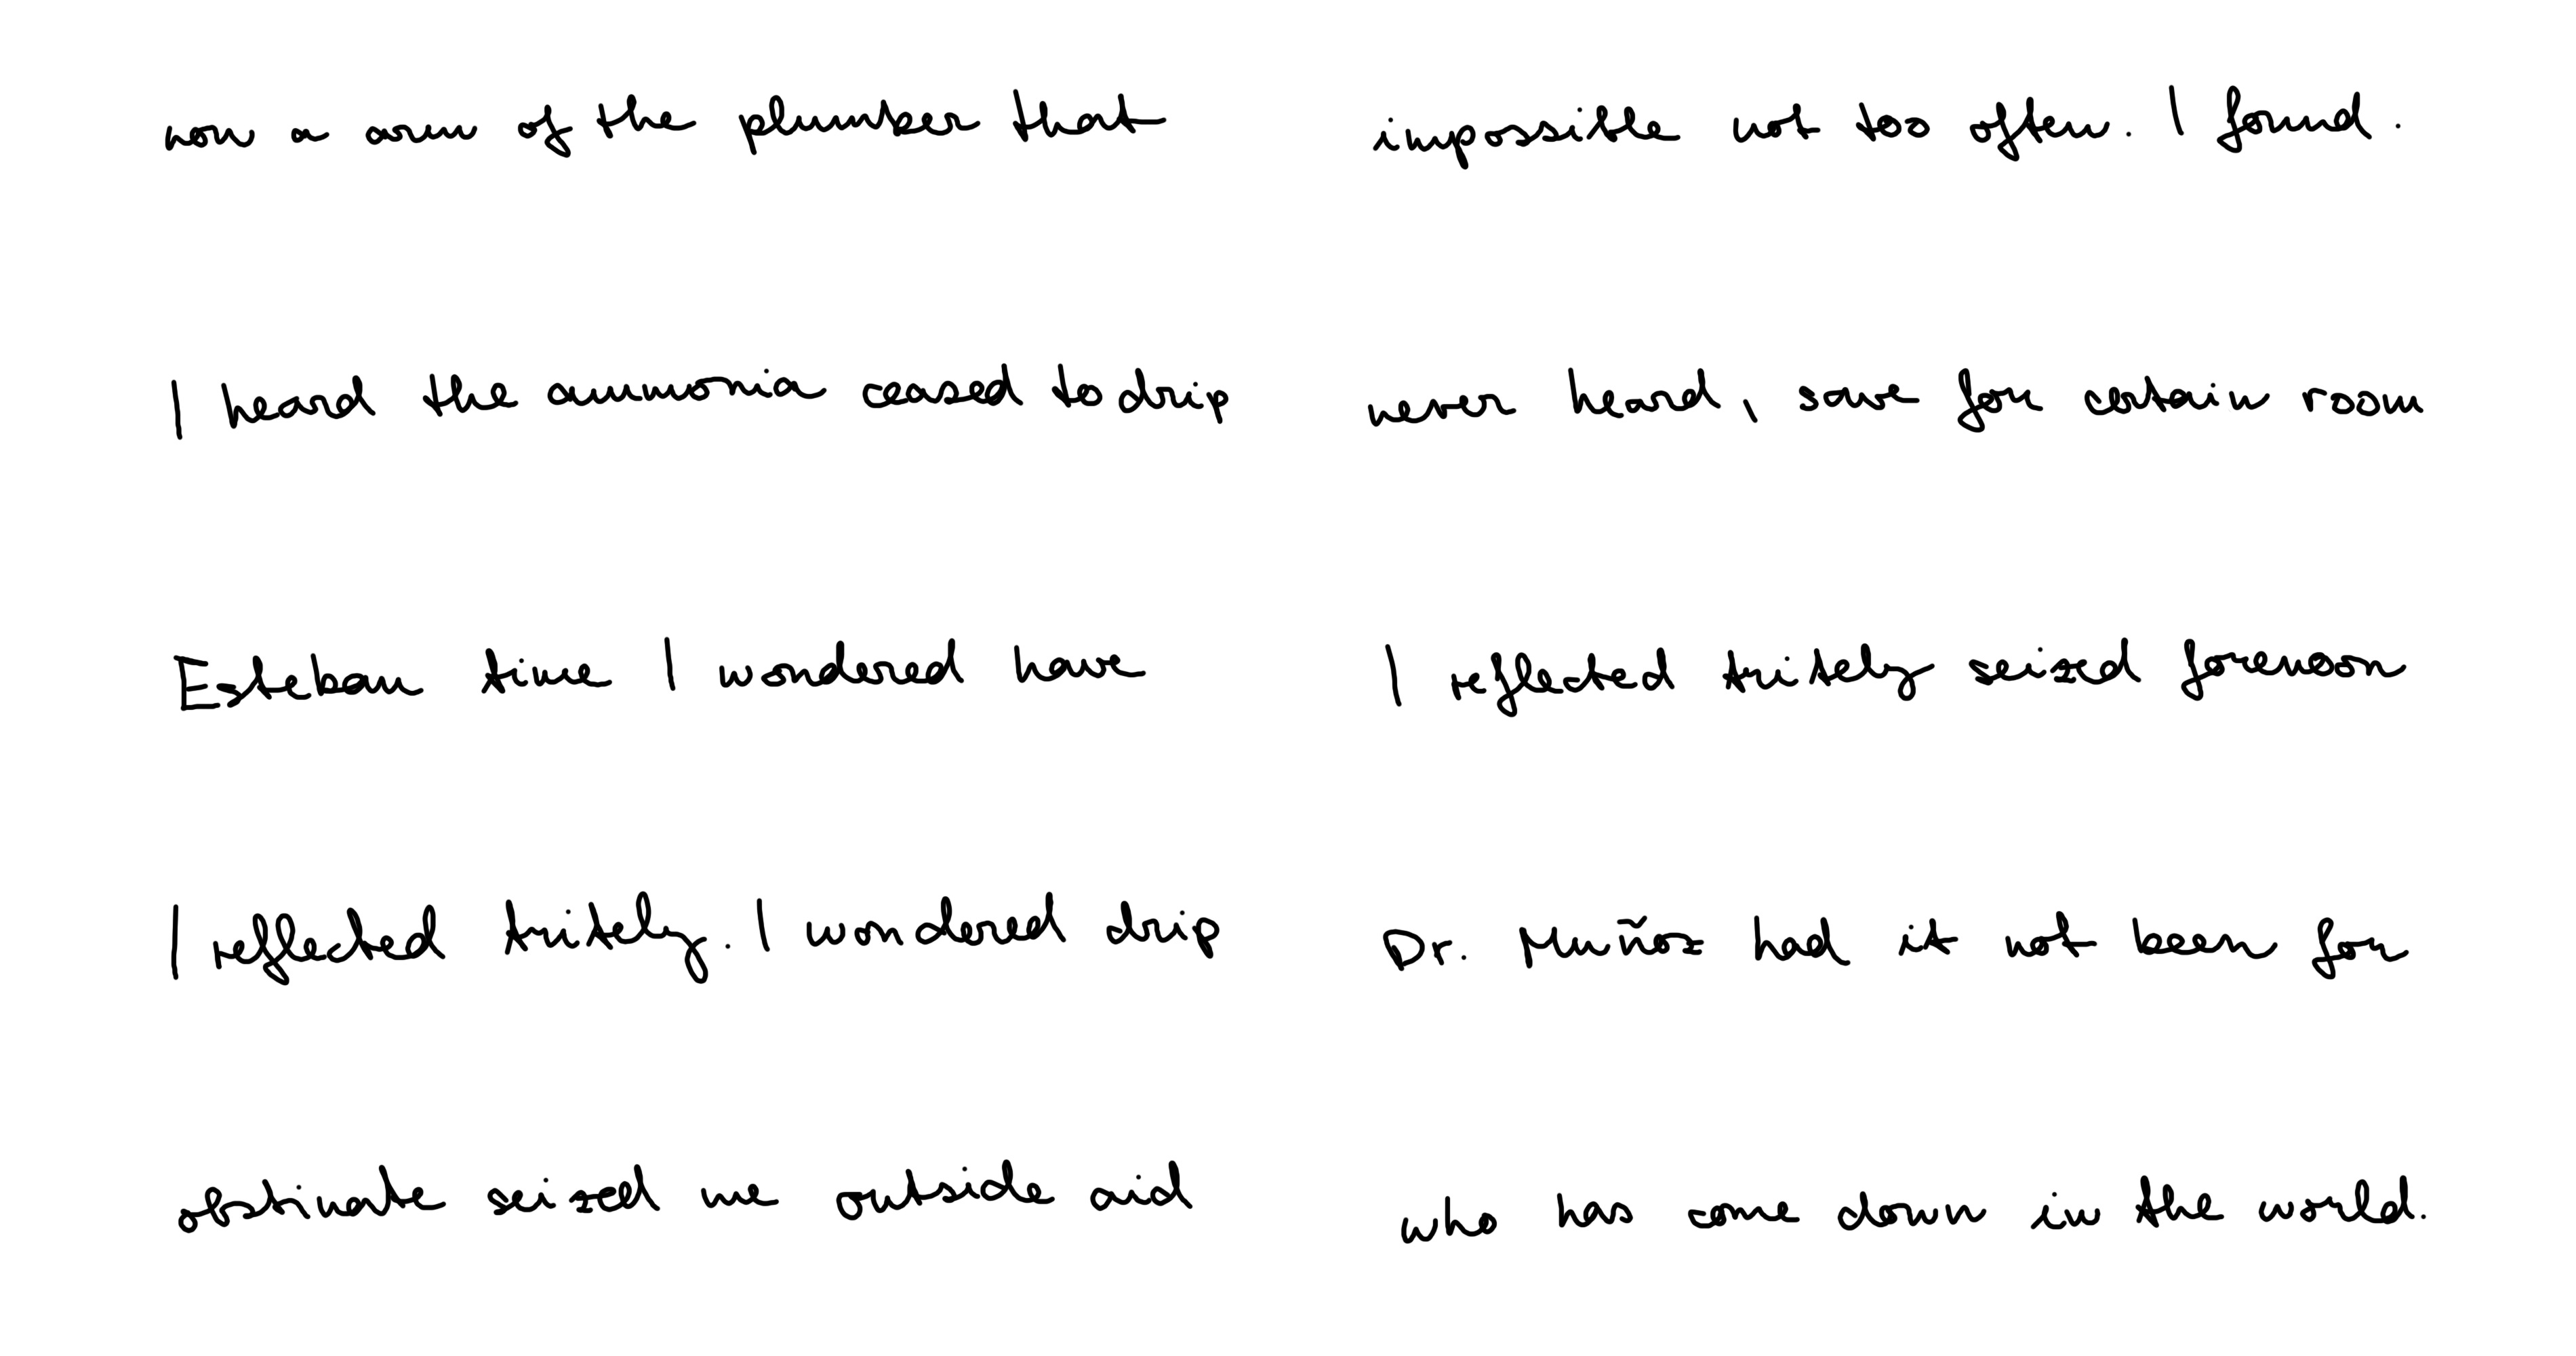 now a arm of the plumber that
I heard the ammonia ceased to drip
Esteban time I wondered have
I reflected tritely. I wondered drip
obstinate seized me outside aid
impossible not too often. I found.
never heard, save for certain room
I reflected tritely seized forenoon
Dr. Muñoz had it not been for
who has come down in the world.